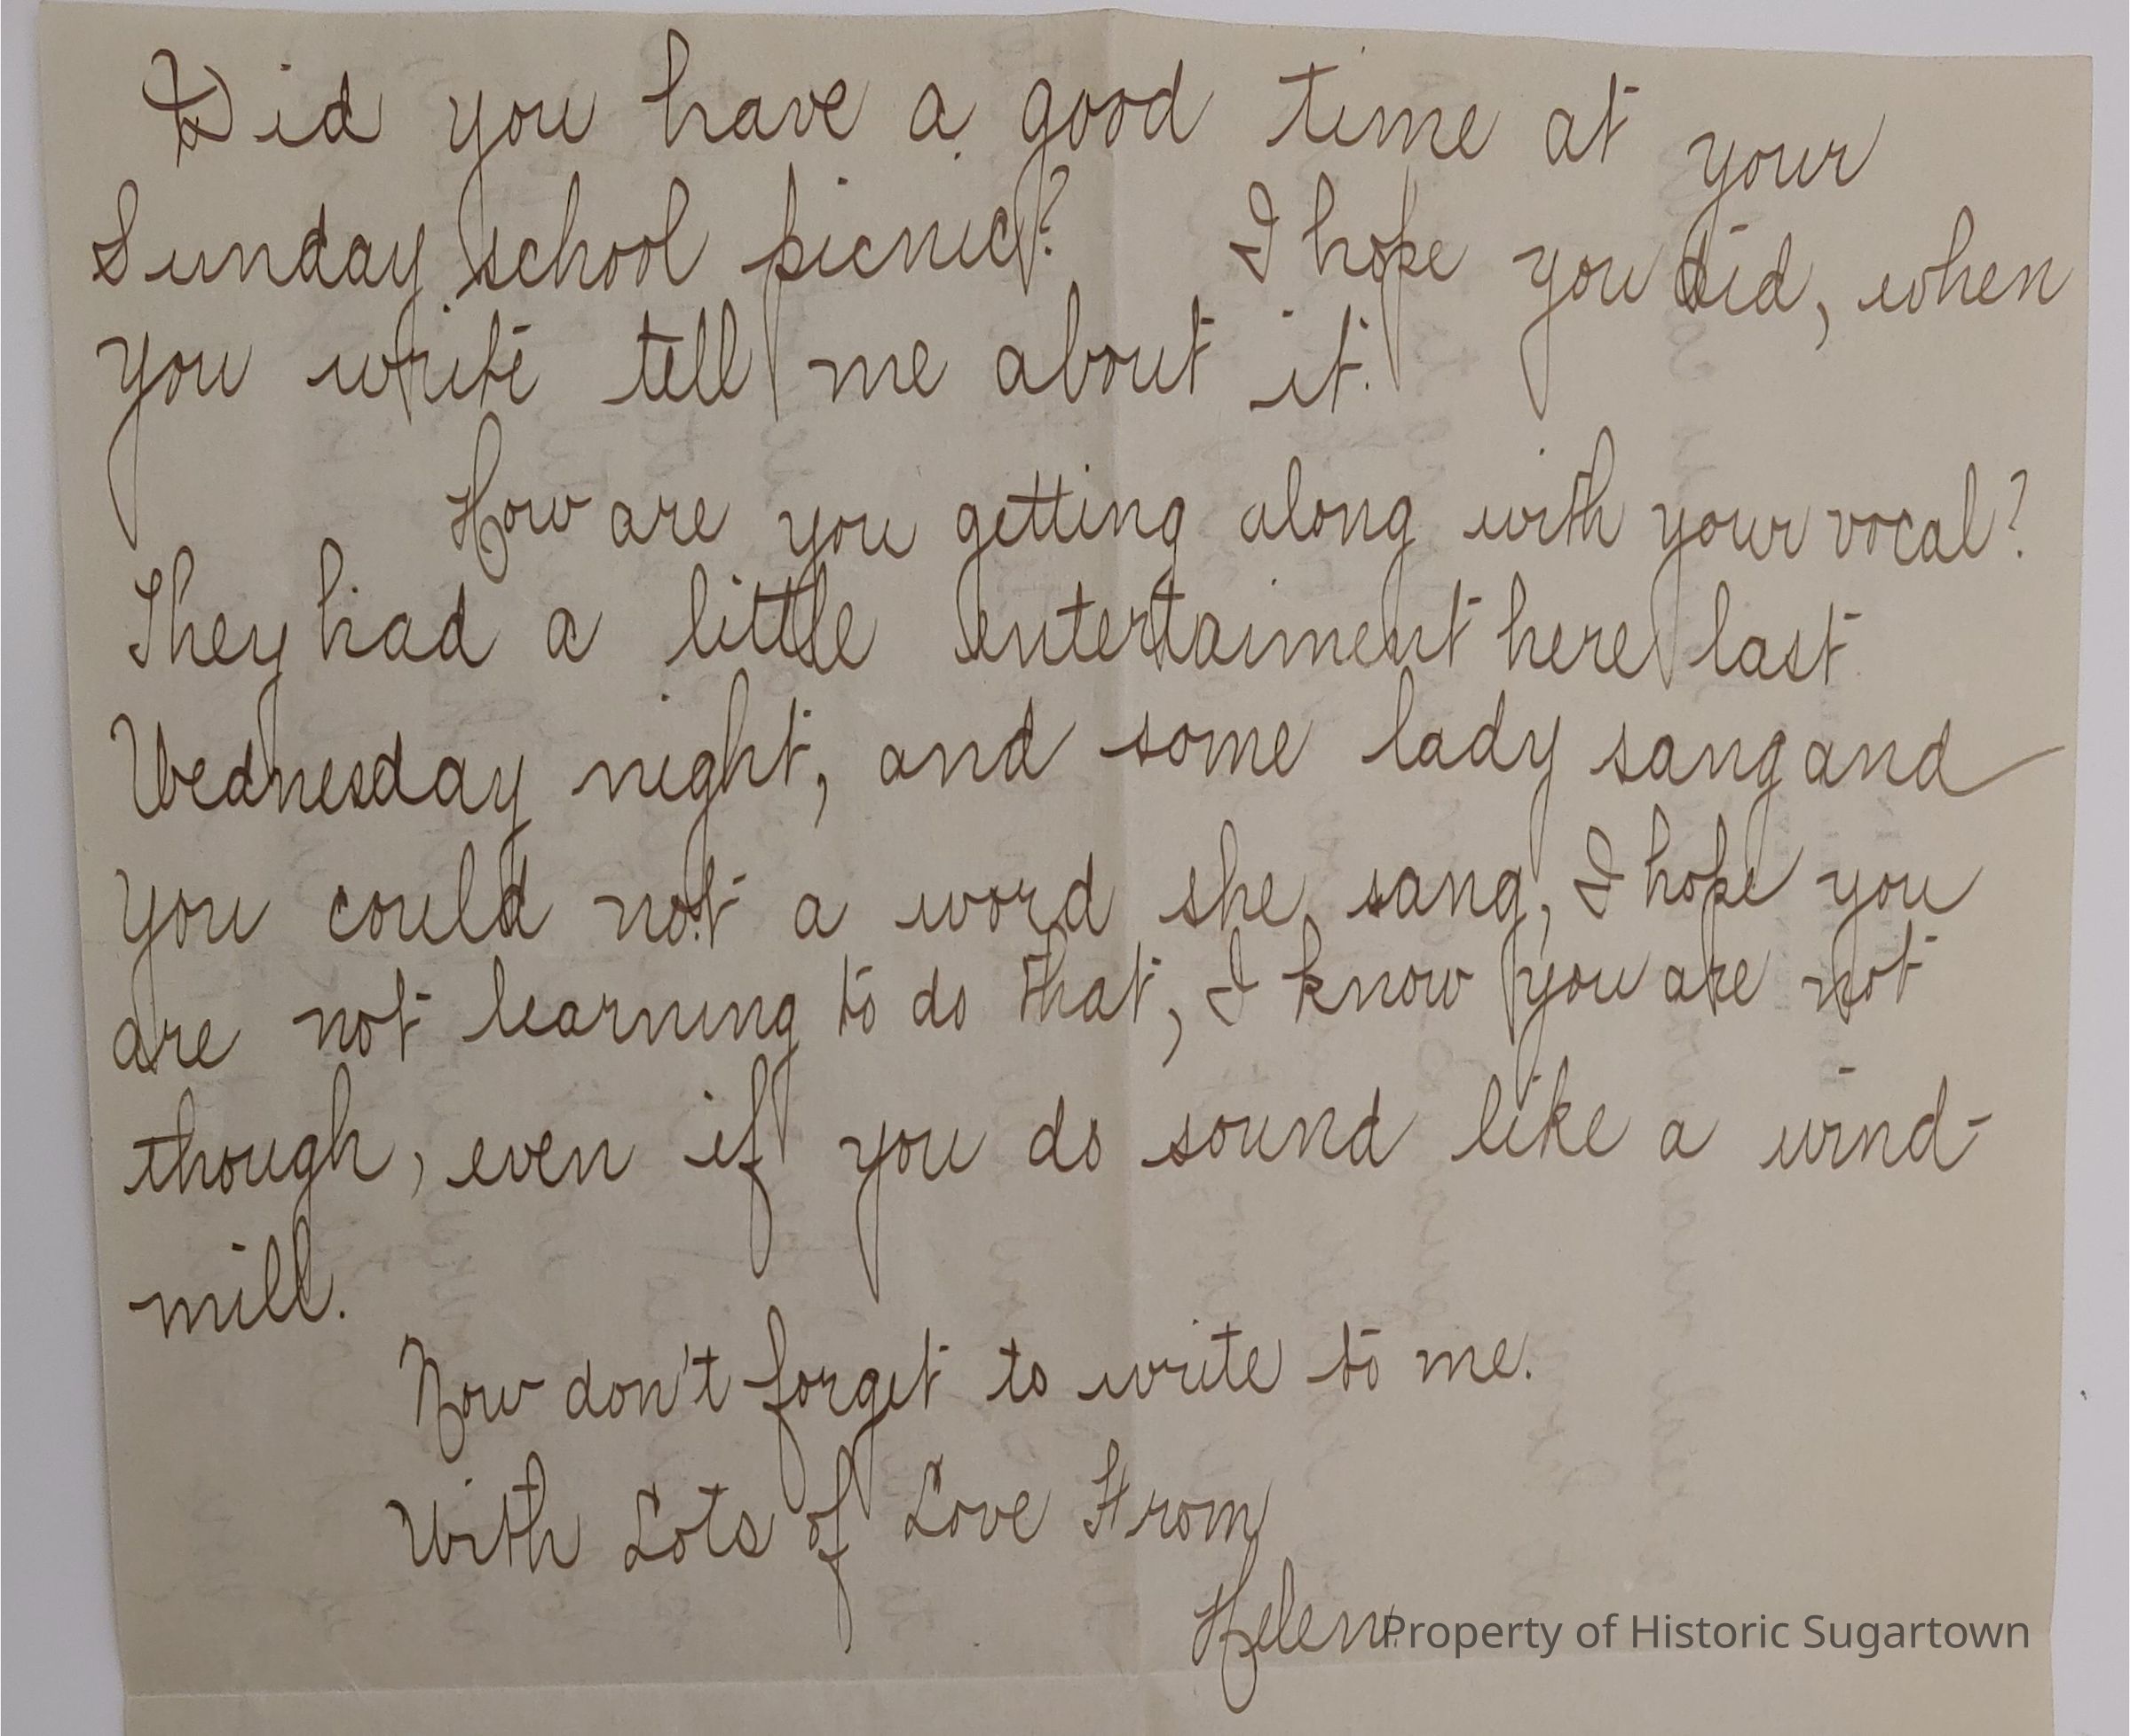 Did you have a good time at your
Sunday school picnic? I hope you did, when
you write tell me about it.
How are you getting along with your vocal?
They had a little entertaiment here last
Wednesday night, and some lady sang and
you could not a word she sang, I hope you
are not learning to do that, I know you are not
though, even if you do sound like a wind-
mill.
Now don't forget to write to me.
With Lots of Love From
Helen.
Property of Historic Sugartown